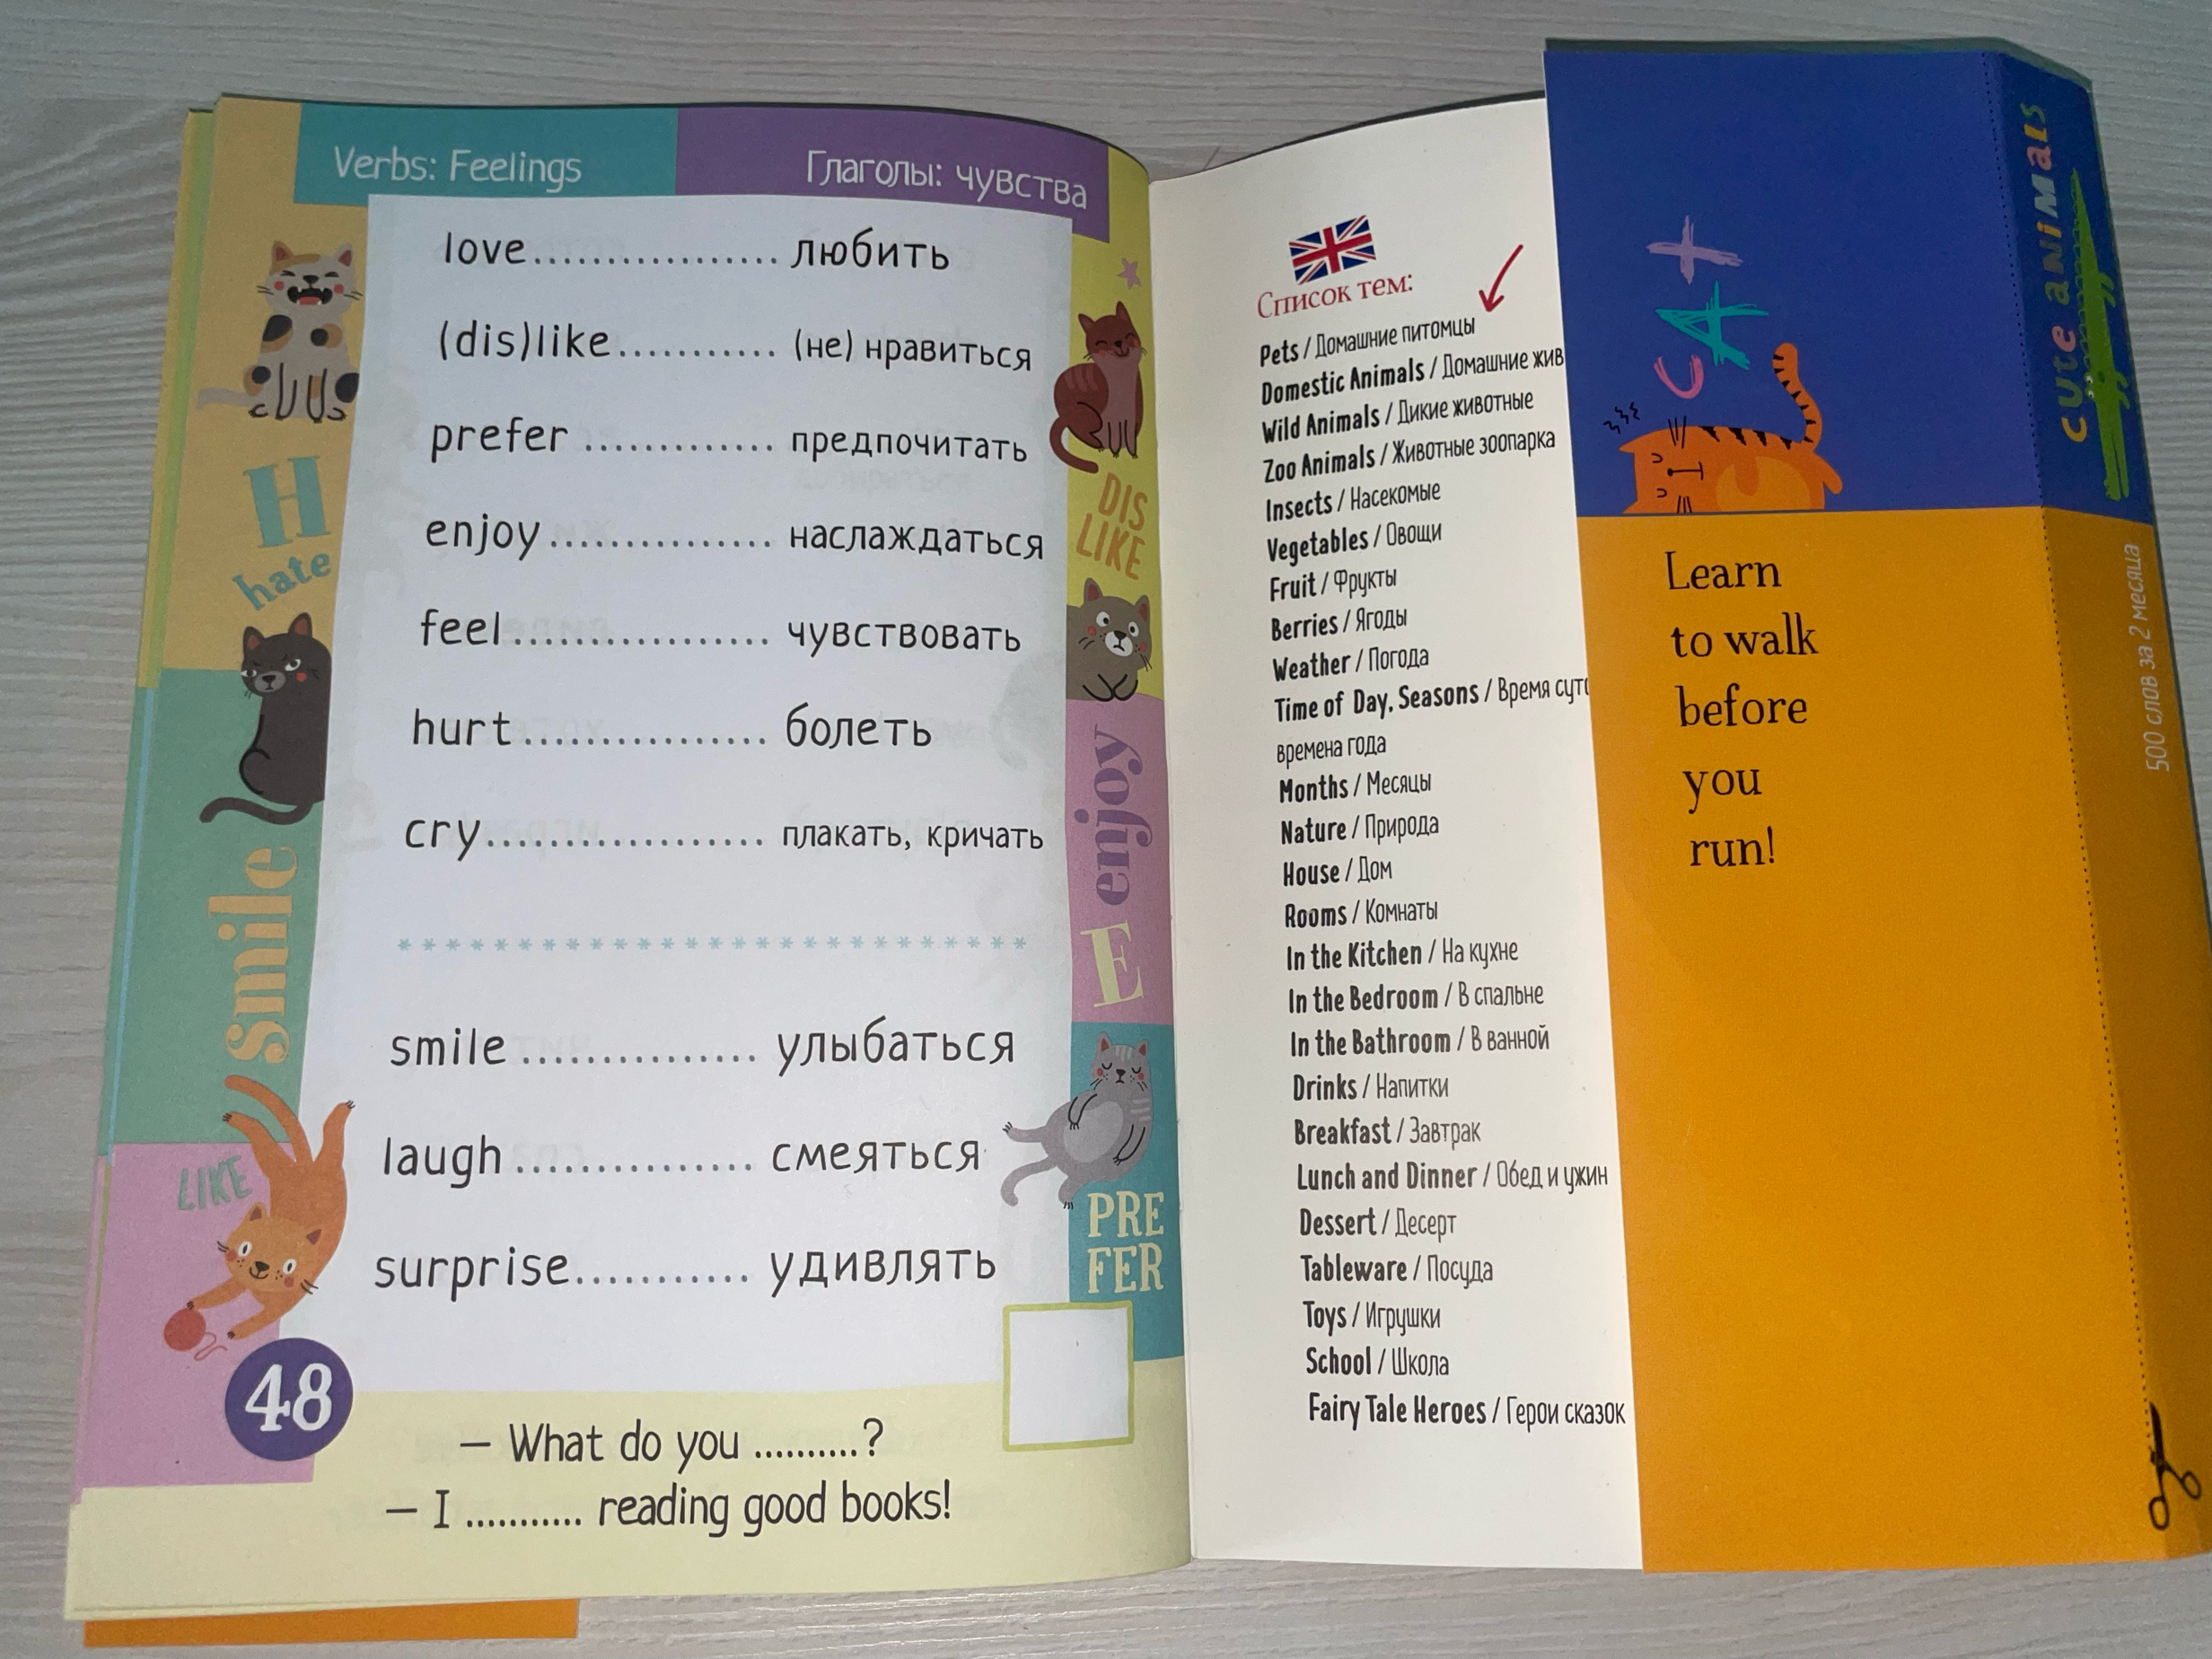 Verbs: Feelings
Глаголы: чувства
love.................. любить
(dis)like............ (не) нравиться
prefer ............. предпочитать
enjoy................ наслаждаться
feel.................. чувствовать
hurt................. болеть
cry................... плакать, кричать
**************************
smile ................ улыбаться
laugh ................ смеяться
surprise............ удивлять
48
– What do you ..........?
– I ........... reading good books!
H
hate
smile
LIKE
DIS
LIKE
enjoy
E
PRE
FER
Список тем:
Pets / Домашние питомцы
Domestic Animals / Домашние жив
Wild Animals / Дикие животные
Zoo Animals / Животные зоопарка
Insects / Насекомые
Vegetables / Овощи
Fruit / Фрукты
Berries / Ягоды
Weather / Погода
Time of Day, Seasons / Время суто
времена года
Months / Месяцы
Nature / Природа
House / Дом
Rooms / Комнаты
In the Kitchen / На кухне
In the Bedroom / В спальне
In the Bathroom / В ванной
Drinks / Напитки
Breakfast / Завтрак
Lunch and Dinner / Обед и ужин
Dessert / Десерт
Tableware / Посуда
Toys / Игрушки
School / Школа
Fairy Tale Heroes / Герои сказок
CAT
Learn
to walk
before
you
run!
CUTE ANiMALS
500 слов за 2 месяца